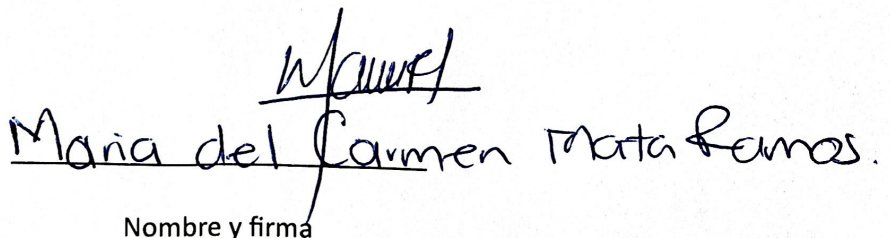 Maria del Carmen Mata Ramos.
Nombre y firma